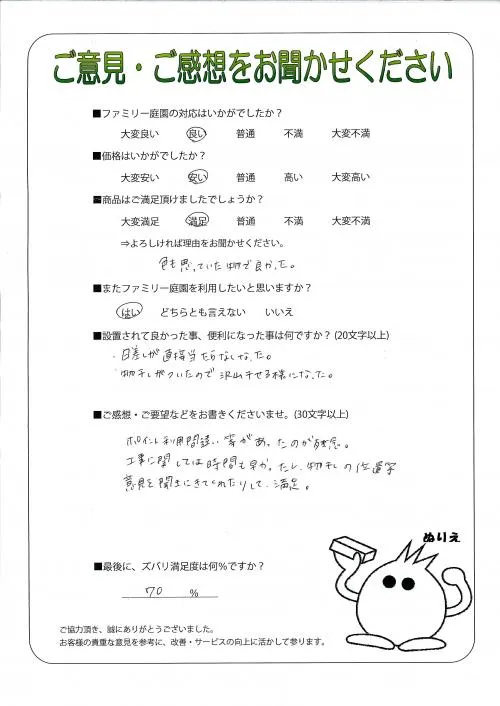 ご意見・ご感想をお聞かせください
■ファミリー庭園の対応はいかがでしたか？
大変良い 良い 普通 不満 大変不満
■価格はいかがでしたか？
大変安い 安い 普通 高い 大変高い
■商品はご満足頂けましたでしょうか？
大変満足 満足 普通 不満 大変不満
⇒よろしければ理由をお聞かせください。
色も思っていた物で良かった。
■またファミリー庭園を利用したいと思いますか？
はい どちらとも言えない いいえ
■設置されて良かった事、便利になった事は何ですか？(20文字以上)
・日差しが直接当たらなくなった。
・物干しがついたので沢山干せる様になった。
■ご感想・ご要望などをお書きくださいませ。(30文字以上)
ポイント利用間違い等があったのが残念。
工事に関しては時間も早かったし、物干しの位置等
意見を聞きにきてくれたりして、満足。
ぬりえ
■最後に、ズバリ満足度は何％ですか？
70 ％
ご協力頂き、誠にありがとうございました。
お客様の貴重な意見を参考に、改善・サービスの向上に活かして参ります。